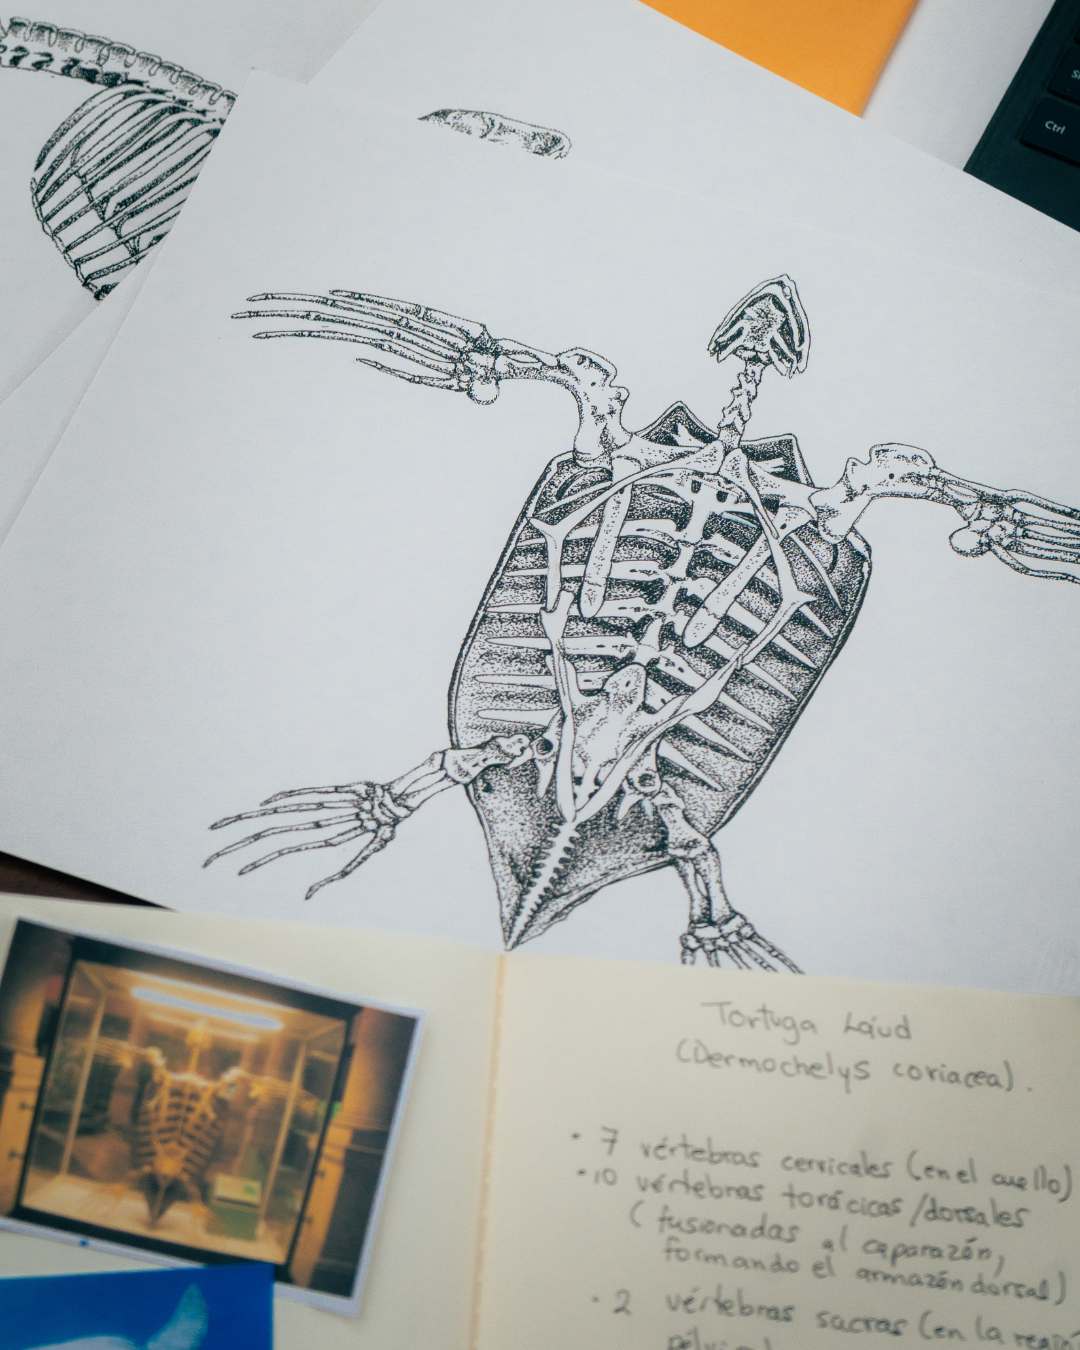 Ctrl
Tortuga Laúd
(Dermochelys coriacea).
• 7 vértebras cervicales (en el cuello)
• 10 vértebras torácicas/dorsales
(fusionadas al caparazón,
formando el armazón dorsal)
• 2 vértebras sacras (en la